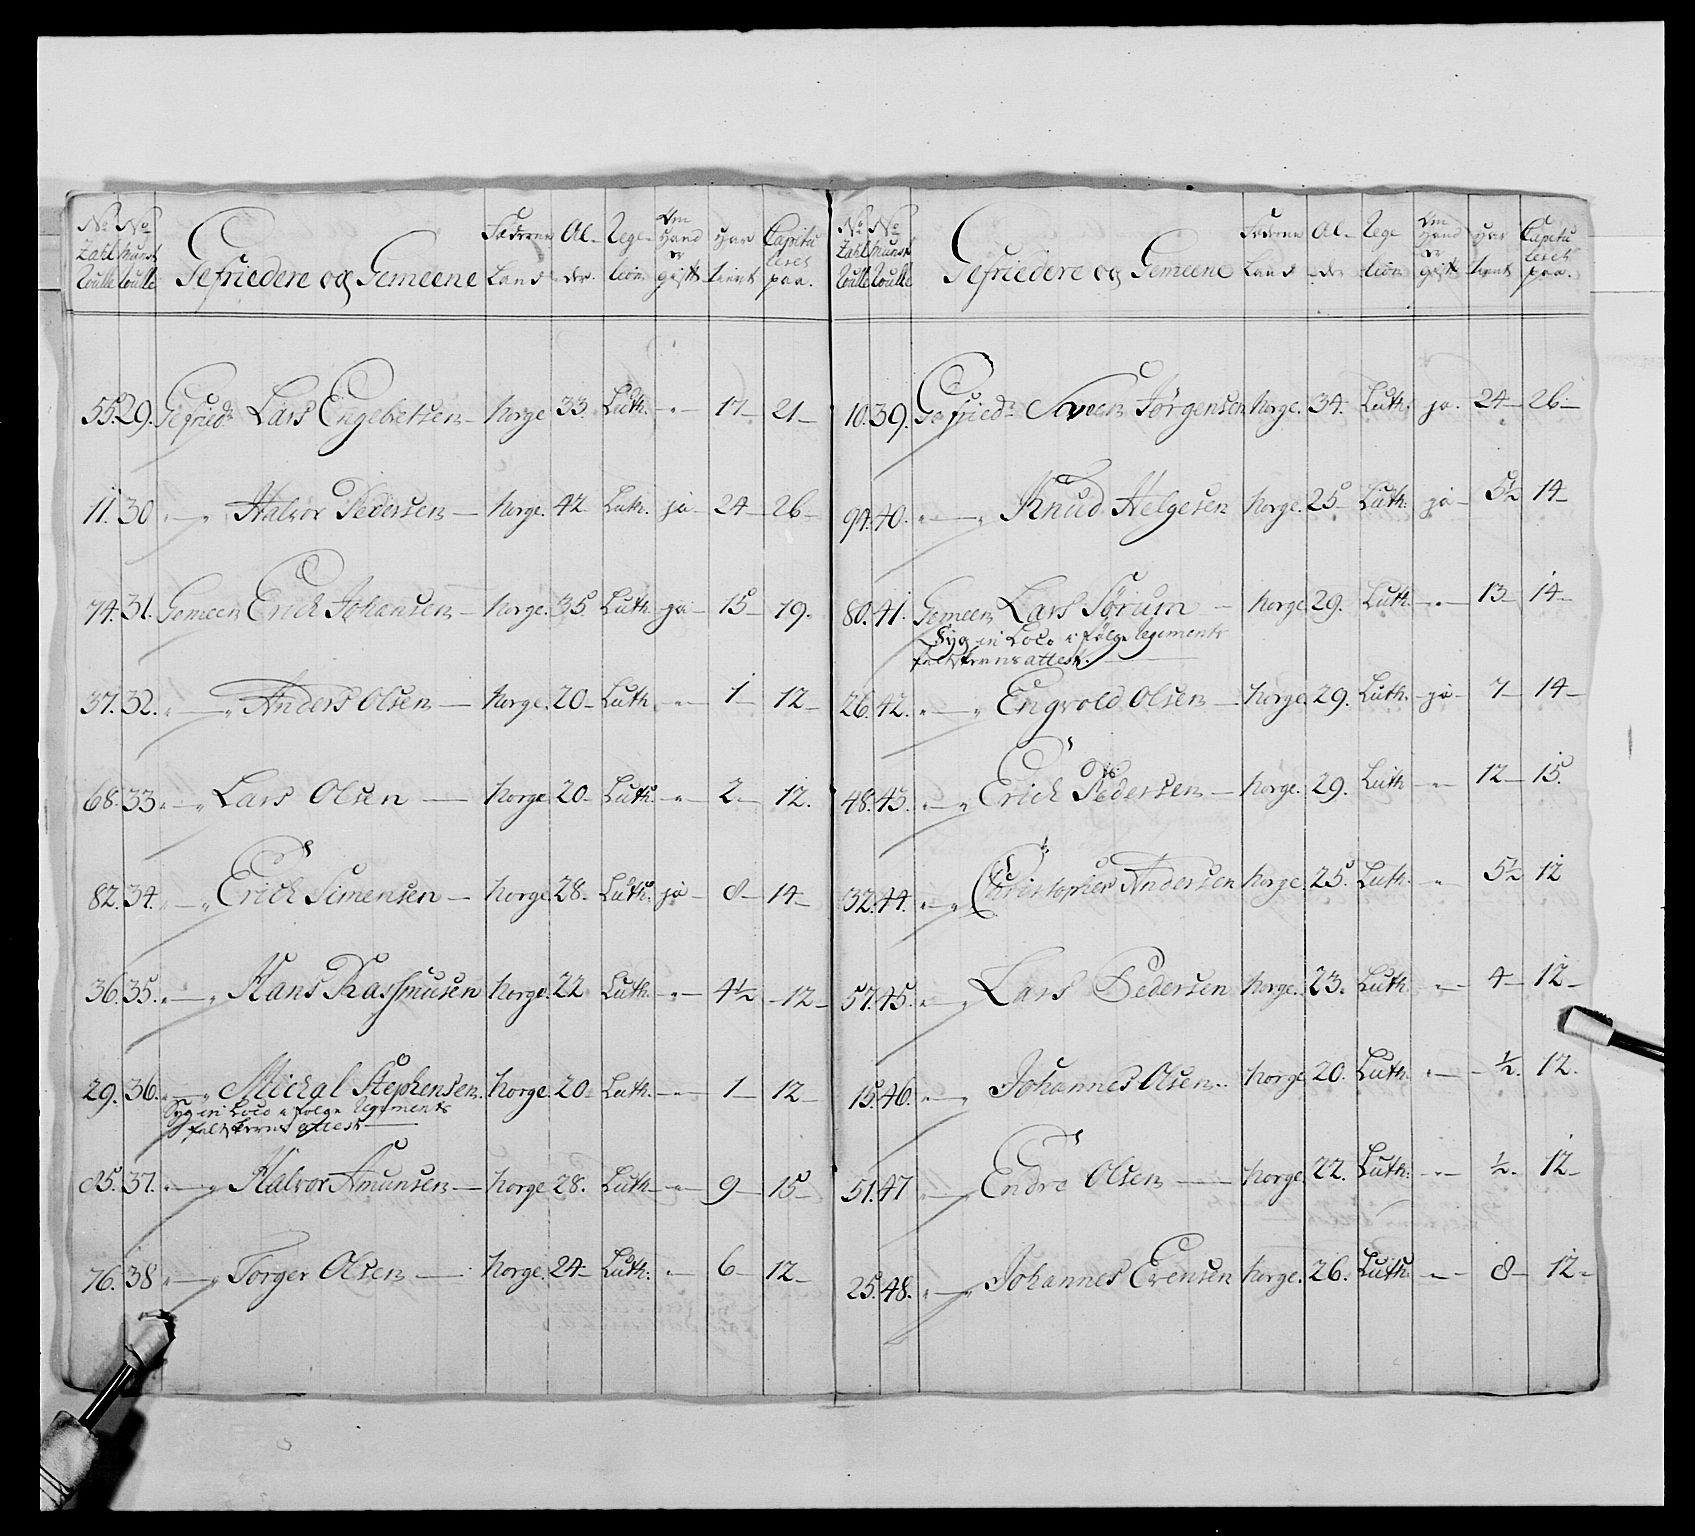 No Zahl Roulle No Munst Roulle Gefriedere og Gemeene Fæderne Land Al- der. Rege- lion Om Hand er gift Har tient Capitu leret paa.
55. 29. Gefried: Lars Engebretsen Norge 33. Luth. - 17 21
11. 30 " Halvor Pedersen Norge. 42 Luth. ja 24 26
74. 31. Gemeen Erich Johansen Norge. 35 Luth ja 15 19.
37. 32. " Anders Olsen Norge. 20 Luth. - 1 12
68. 33 " Lars Olsen Norge 20 Luth - 2 12.
82. 34. " Erich Simensen Norge 28. Luth. ja 8 14
36. 35. " Hans Rasmusen Norge. 22 Luth. - 4½ 12
29. 36. " Michal Stephensen Norge. 20 Luth. - 1 12
Syg in Loco i følge Regiments
feltskerens attest
85. 37. " Halvor Amunsen Norge 28. Luth. - 9 15
76. 38 " Torger Olsen Norge. 24 Luth. - 6 12
No Zahl Roulle No Munst Roulle Gefriedere og Gemeene Fæderne Land Al- der Rege lion Om Hand er gift Har tient Capitu leret paa.
10. 39. Gefried: Sven Jørgensen Norge. 34. Luth. ja. 24 26
94. 40. " Knud Helgesen Norge. 25 Luth. ja 5½ 14
80. 41. Gemeen Lars Sørum Norge 29. Luth - 13 14
Syg in Loco i følge Regiments
feltskerens attest.
26. 42. " Engvold Olsen Norge. 29. Luth. ja 7 14
48. 43. " Erich Pedersen Norge. 29. Luth - 12 15.
32. 44. " Christopher Andersen Norge. 25. Luth. - 5½ 12
57. 45. " Lars Pedersen Norge. 23. Luth - 4 12
15. 46. " Johannes Olsen Norge 20. Luth. - ½. 12.
51. 47 " Endre Olsen Norge. 22. Luth. - ½. 12
25. 48. " Johannes Evensen Norge. 26. Luth. - 8 12